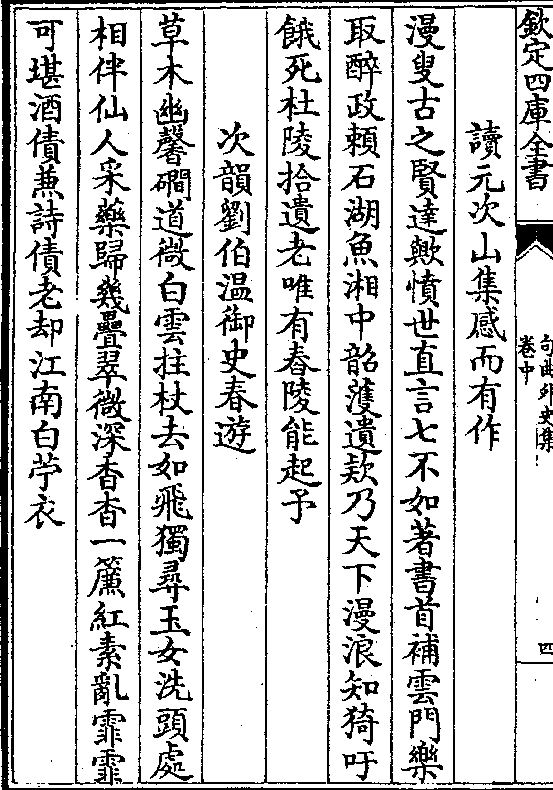 欽定四庫全書
句曲外史集
卷中
四
讀元次山集感而有作
漫叟古之賢達歟憤世直言七不如著書首補雲門樂
取醉政頼石湖魚湘中韶頀遺欵乃天下漫浪知猗吁
餓死杜陵拾遺老唯有舂陵能起予
次韻劉伯温御史春遊
草木幽馨磵道微白雲拄杖去如飛獨尋玉女洗頭處
相伴仙人采藥歸幾疊翠微深杳杳一簾紅素亂霏霏
可堪酒債兼詩債老却江南白苧衣